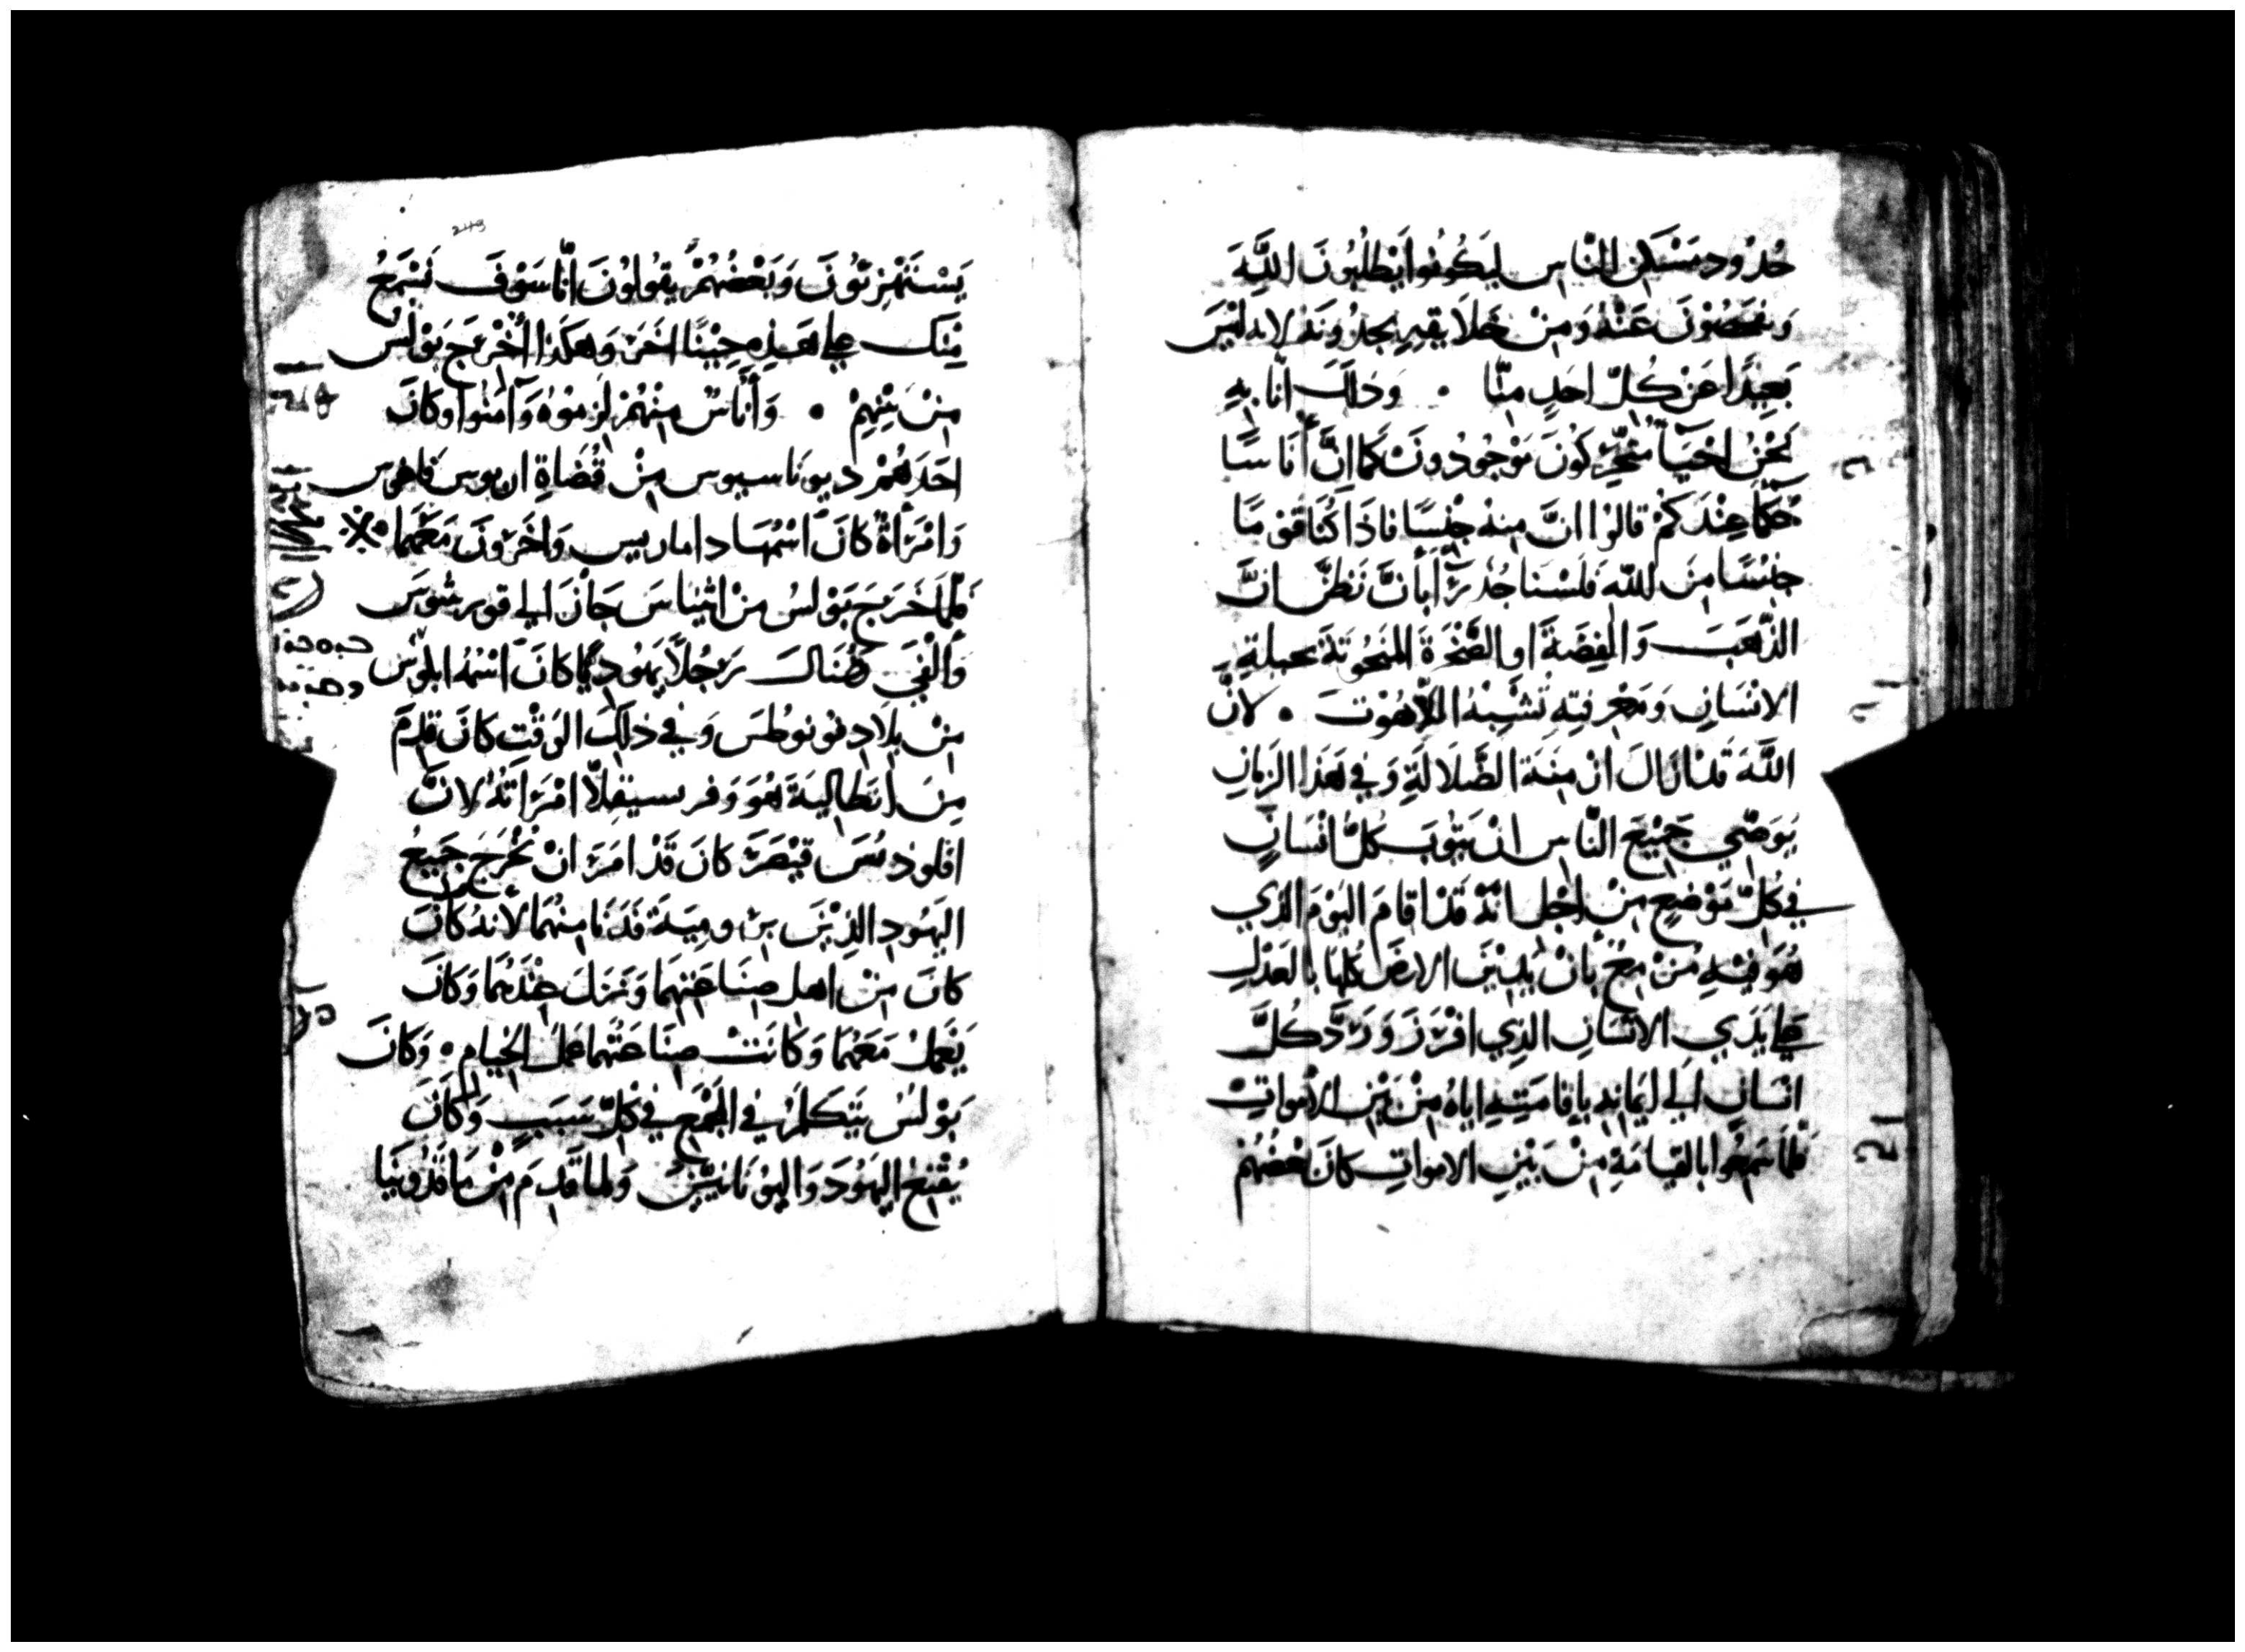 حُدُود مَسْكَن النَّاسِ لِيَكُونُوا يَطْلُبُونَ اللَّهَ
وَيفحَصُوْنَ عَنْهُ وَمِنْ خَلَايقِهِ يجدُونَه لانه لَيْسَ
بَعِيْدًا عَنْ كُلّ احَدٍ مِنّا • وَذلكَ انّا بِهِ
نَحْنُ احْيَآ مُتحرِّكُونَ مَوْجُودُونَ كَمَا انَّ أُنَاسًا
حُكَمَا عِنْدَكُمْ قالوْا انَّ مِنه جِنْسَنا فاذَا كُنّا قوْمًا
جِنْسُنَا مِنَ اللّه فَلَسْنا جُدَرَآ بأنَّ نَظنَّ انَّ
الذّهَبَ وَالفِضَةَ او الصَّخْرَةَ المَنحُوتَةَ بحيلةِ
الانْسَانِ وَمَعْرِفتِهِ تُشْبِهُ اللّاهُوْتَ • لانَّ
اللَّهَ قَدْ ازَالَ ازْمِنَة الضَّلَالَةِ وَفي هَذَا الزمَانِ
يُوَصّي جَمِيْعَ النَّاسِ انْ يَتُوبَ كلُّ انْسَانٍ
في كُلّ مَوْضِعٍ مِنْ اجْلِ انّهُ قَدْ اقامَ اليَوْمَ الذي
هُوَ فِيْهِ مُزْمِعٌ بأنْ يَدِيْنَ الارضَ كلهَا بالعَدْلِ
عَلي يَدَي الانْسَانِ الذِي افْرَزَ وَرَدَّ كُلَّ
انْسَانٍ الَي ايمَانهِ بإقامَتِهِ ايَاهُ مِنْ بَيْنِ الأمْواتِ
فلمّا سَمِعُوا بالقيَامَةِ مِنْ بَيْنِ الامواتِ كانَ بَعْضُهُمْ
249
يَسْتَهْزِئُونَ وَبَعْضُهُمْ يَقُولُوْنَ انّا سَوْفَ نَسْمَعُ
مِنكَ عَلي هَذِهِ حِيْنًا اخَرَ وَهكَذا اخْرَجَ بَوْلسَ
مِنْ بَيْنِهِمْ • وَأُنَاسٌ مِنْهُمْ لَزِمُوْهُ وَآمَنُوا وكانَ
احَدَهُمْ ديوناسيوس مِنْ قُضَاةِ اريوس فاغوس
وَامْرَأَةٌ كانَ اسْمُهَا داماريس وَاخَرُونَ مَعَهُمَا ※
فَلَمّا خَرَجَ بَوْلسُ مِنْ اثيناسَ جَاءَ الي قورنثوسَ
وَألْفَي هُنَاكَ رَجُلاً يَهُودِيًّا كانَ اسْمُهُ اقلوس
مِنْ بلَادِ فونوطُسَ وَفي ذلِكَ الوَقْتِ كانَ قَدِمَ
مِنَ انَطاليَةَ هُوَ وَفريسيقلّا امْرَاتُهُ لانَّ
اقلوذيُسَ قيْصَرَ كانَ قَدْ امَرَ انْ يُخْرَجَ جَمِيعُ
اليَهُودِ الذِيْنَ برُوميَةَ فَدَنَا مِنْهُمَا لأنهُ كانَ
كانَ مِنْ اهل صِنَاعَتِهِمَا وَنَزَلَ عِنْدَهُمَا وَكانَ
يَعْمَلُ مَعَهُمَا وَكانَتْ صِنَاعَتُهمَا عَمَلَ الخِيَامِ • وَكانَ
بَوْلسُ يَتكَلمُ في المَجْمَعِ في كلّ سَبتٍ وَكانَ
يُقْنِعُ اليَهُودَ وَاليُوْنَانِيّيْنَ وَلما قَدِمَ مِنْ مَاقَدُونِيَا